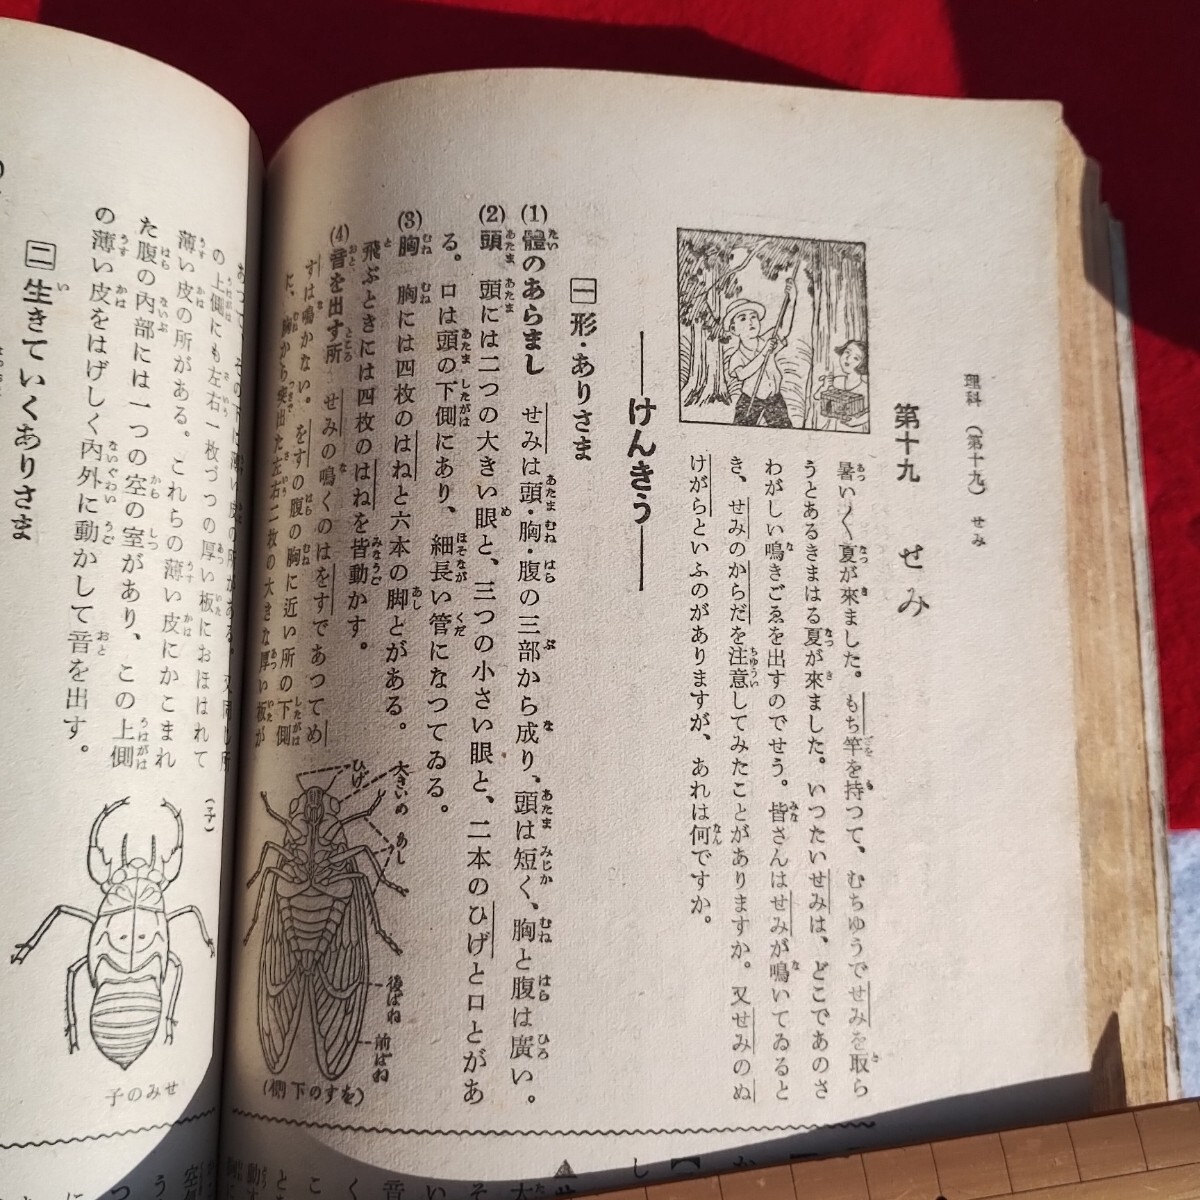 理科（第十九）　せみ
第十九　せみ
暑い〱夏が來ました。もち竿を持つて、むちゆうでせみを取ら
うとあるきまはる夏が來ました。いつたいせみは、どこであのさ
わがしい鳴きごゑを出すのでせう。皆さんはせみが鳴いてゐると
き、せみのからだを注意してみたことがありますか。又せみのぬ
けがらといふのがありますが、あれは何ですか。
けんきう
一 形・ありさま
(1) 體のあらまし　せみは頭・胸・腹の三部から成り、頭は短く、胸と腹は廣い。
(2) 頭　頭には二つの大きい眼と、三つの小さい眼と、二本のひげと口とがあ
る。口は頭の下側にあり、細長い管になつてゐる。
(3) 胸　胸には四枚のはねと六本の脚とがある。
飛ぶときには四枚のはねを皆動かす。
(4) 音を出す所　せみの鳴くのはをすであつてめ
すは鳴かない。をすの腹の胸に近い所の下側
に、胸から突出た左右二枚の大きな厚い板が
大きいめ
ひげ
あし
後ばね
前ばね
(をすの下側)
あつて、その下は薄い皮の所がある。又同じ所
の上側にも左右一枚づつの厚い板におほはれて
薄い皮の所がある。これらの薄い皮にかこまれ
た腹の内部には一つの空の室があり、この上側
の薄い皮をはげしく内外に動かして音を出す。
二 生きていくありさま
(子)
せみの子